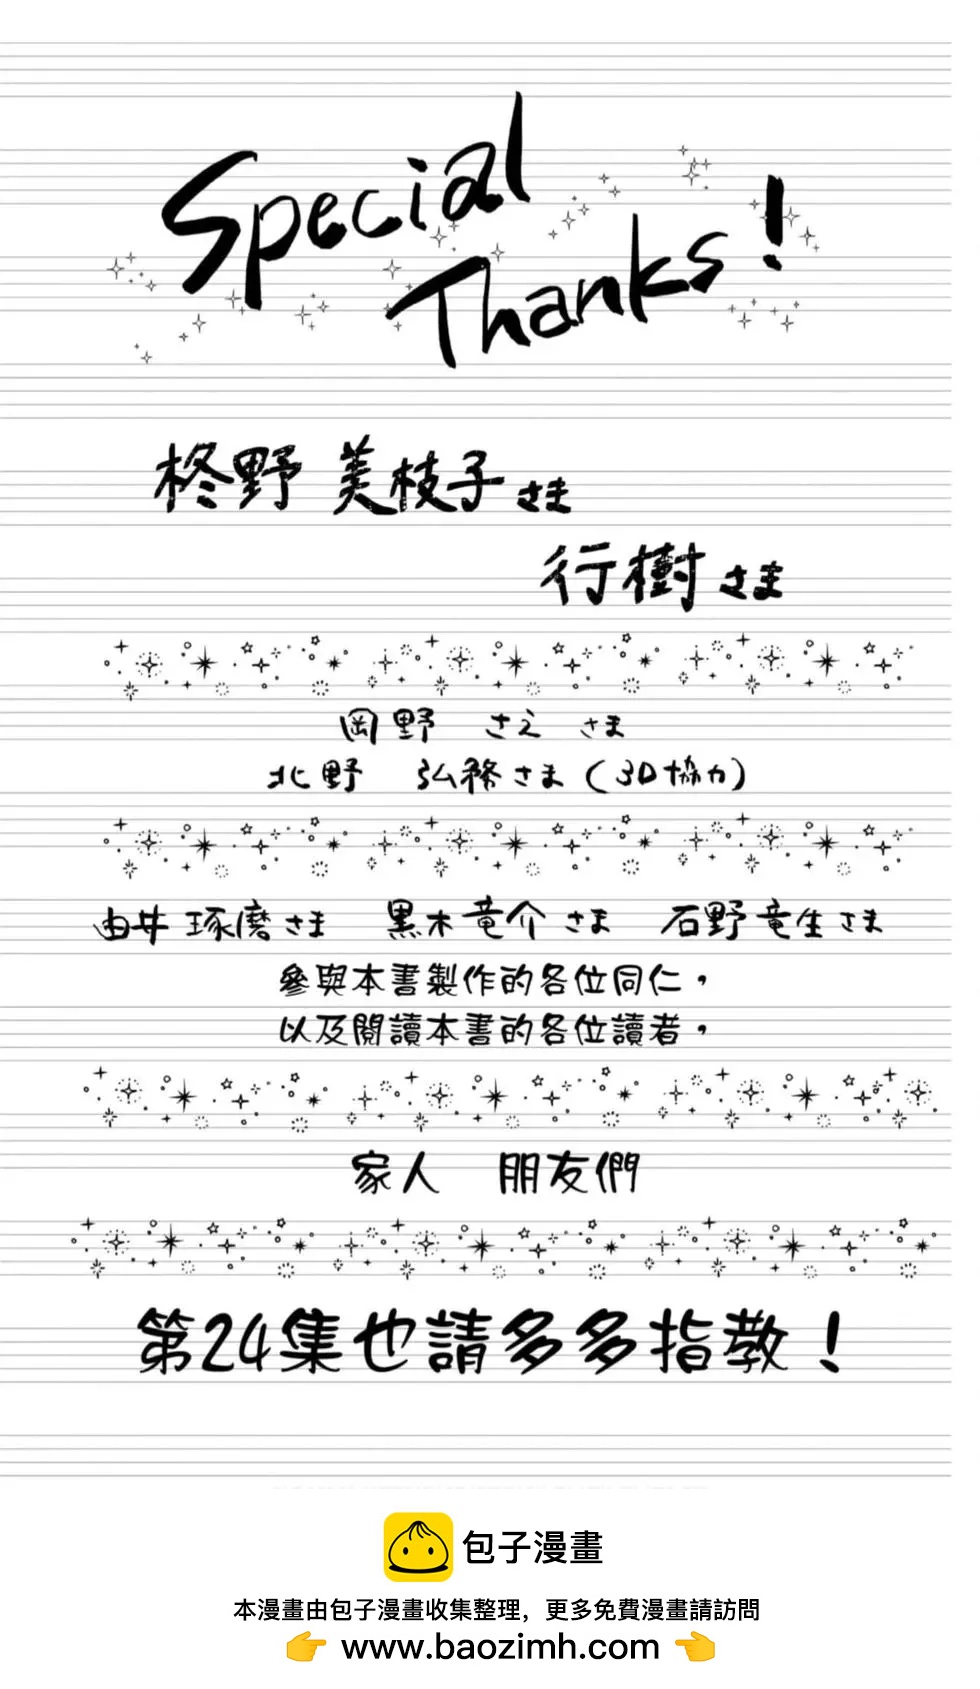 Special
Thanks!
柊野 美枝子さま
行樹さま
岡野 さえ さま
北野 弘務さま(3D協力)
由井琢磨さま 黒木竜介さま 石野竜生さま
參與本書製作的各位同仁，
以及閱讀本書的各位讀者，
家人 朋友們
第24集也請多多指教！
包子漫畫
本漫畫由包子漫畫收集整理，更多免費漫畫請訪問
👉 www.baozimh.com 👈